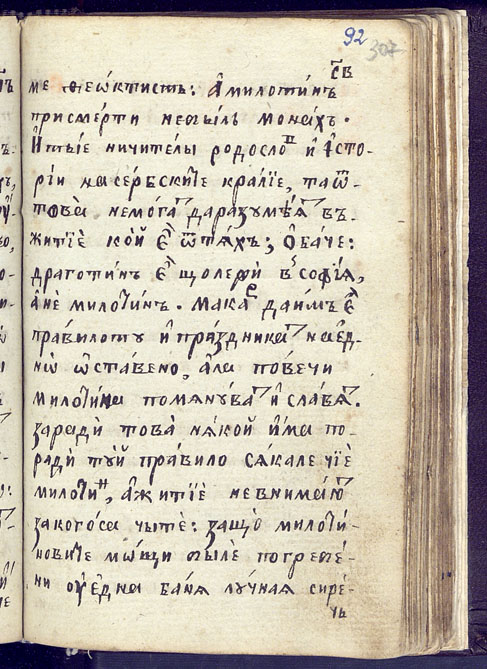 92 307
св
ме ѳеѡктистъ: А҆ милоти́нъ
присмерти небы́лъ мона́хъ.
И҆тые ничителы родосло и҆ истο-
рїи насе́рбските кралїе, таѿ-
това̀ немо́га да разꙋмѣ́ѧ въ
житїѐ ко́й є҆ ѿтѧ́хъ; О҆ба́че:
драготи́нъ є҆ що лежи́ въ софі́ѧ,
а҆ нѐ милоти́нъ. мака да и҆́мъ є҆
пра́вилото и҆ пра́здника наед-
но̀ ѡ҆ста́вено, а҆ла по́вечи
милоти́на помѧнꙋ́ва и҆ сла́вѧ.
зарадѝ това̀ нѧ́кой и҆́ма по-
радѝ тꙋ́й пра́вило сѧ́кале чїѐ
милоти́н, а҆ житїѐ невнима́ю
закого́са чы́те: защо̀ милоти́-
новите мо́щи бы́ле погребе́-
ни ᲂу҆ една ба́нѧ лꙋ́чнаѧ сире́-
чь